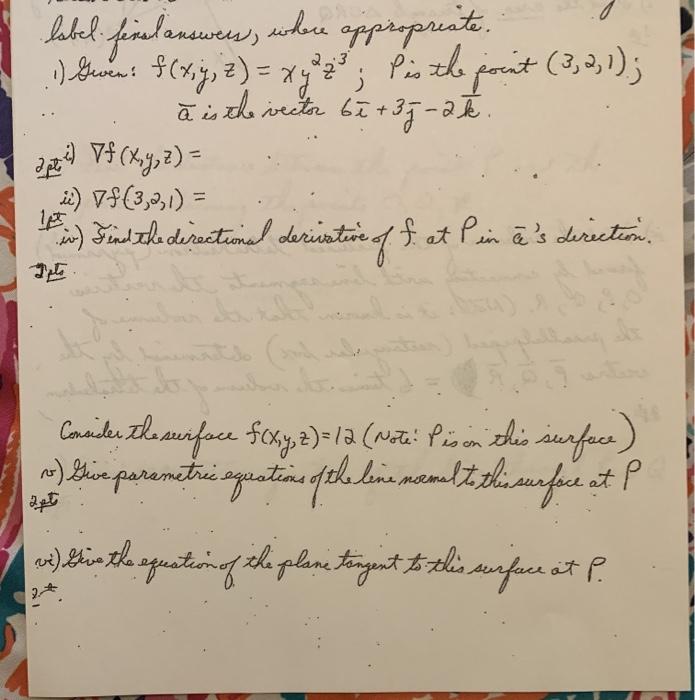 label final answers, where appropriate.
1) Given: f(x,y,z) = xy²z³; P is the point (3,2,1);
ā is the vector 6ī + 3j̄ - 2k̄.
2pt i) ∇f(x,y,z) =
ii) ∇f(3,2,1) =
1pt
iii) Find the directional derivative of f at P in ā's direction.
2pts
Consider the surface f(x,y,z)=12 (Note: P is on this surface)
v) Give parametric equations of the line normal to this surface at P
2pt
vi) Give the equation of the plane tangent to this surface at P.